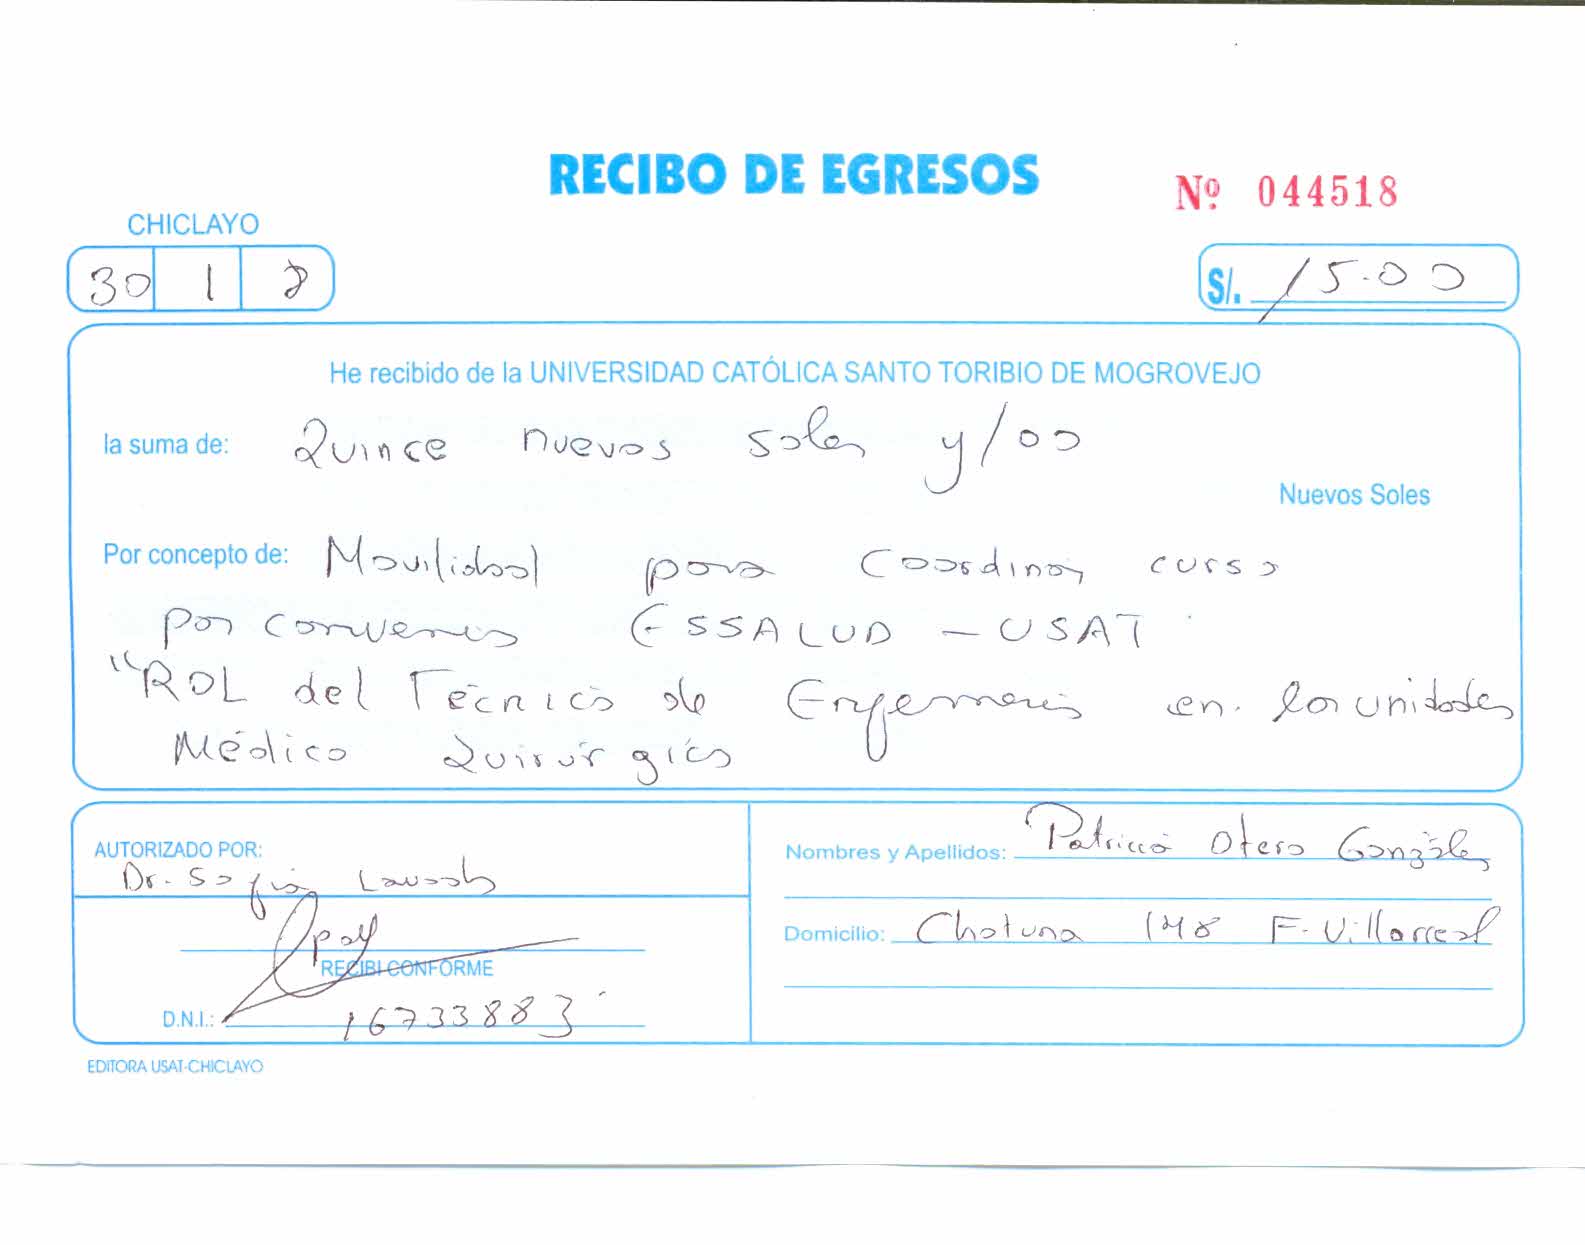 RECIBO DE EGRESOS
Nº 044518
CHICLAYO
30 1 8
S/. 15.00
He recibido de la UNIVERSIDAD CATÓLICA SANTO TORIBIO DE MOGROVEJO
la suma de: Quince nuevos soles y/00
Nuevos Soles
Por concepto de: Movilidad para Coordinar curso
por convenio ESSALUD - USAT
"ROL del Técnico de Enfermería en las unidades
Médico Quirúrgica
AUTORIZADO POR:
Dr. Sofía
RECIBI CONFORME
D.N.I.: 16733883
Nombres y Apellidos: Patricia Otero Gonzáles
Domicilio: Chotuna 148 F. Villarreal
EDITORA USAT-CHICLAYO